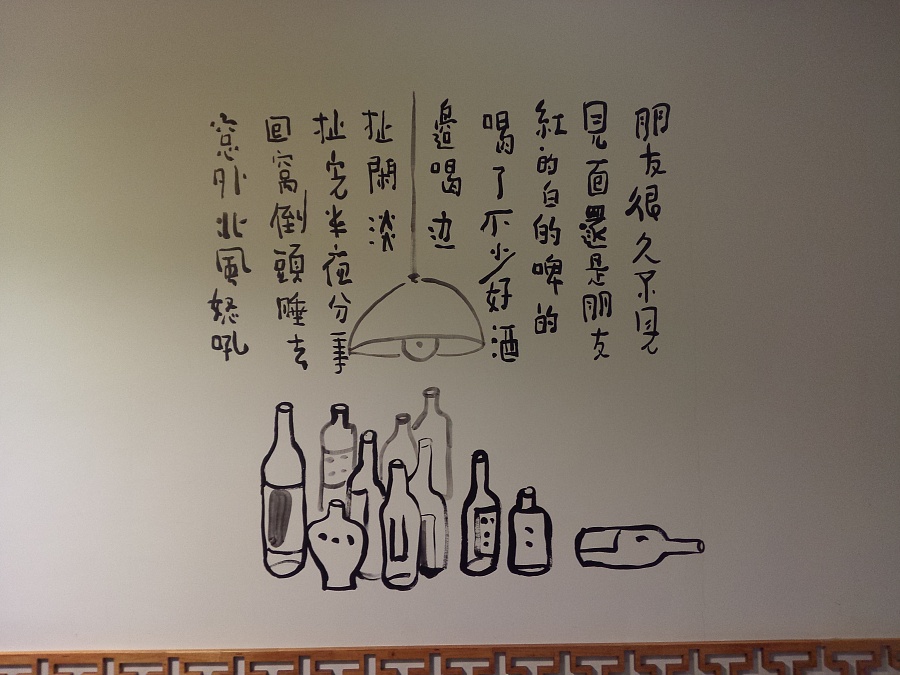 朋友很久不見
見面還是朋友
紅的白的啤的
喝了不少好酒
邊喝边
扯閑淡
扯完半夜分手
回窩倒頭睡去
窓外北風怒吼